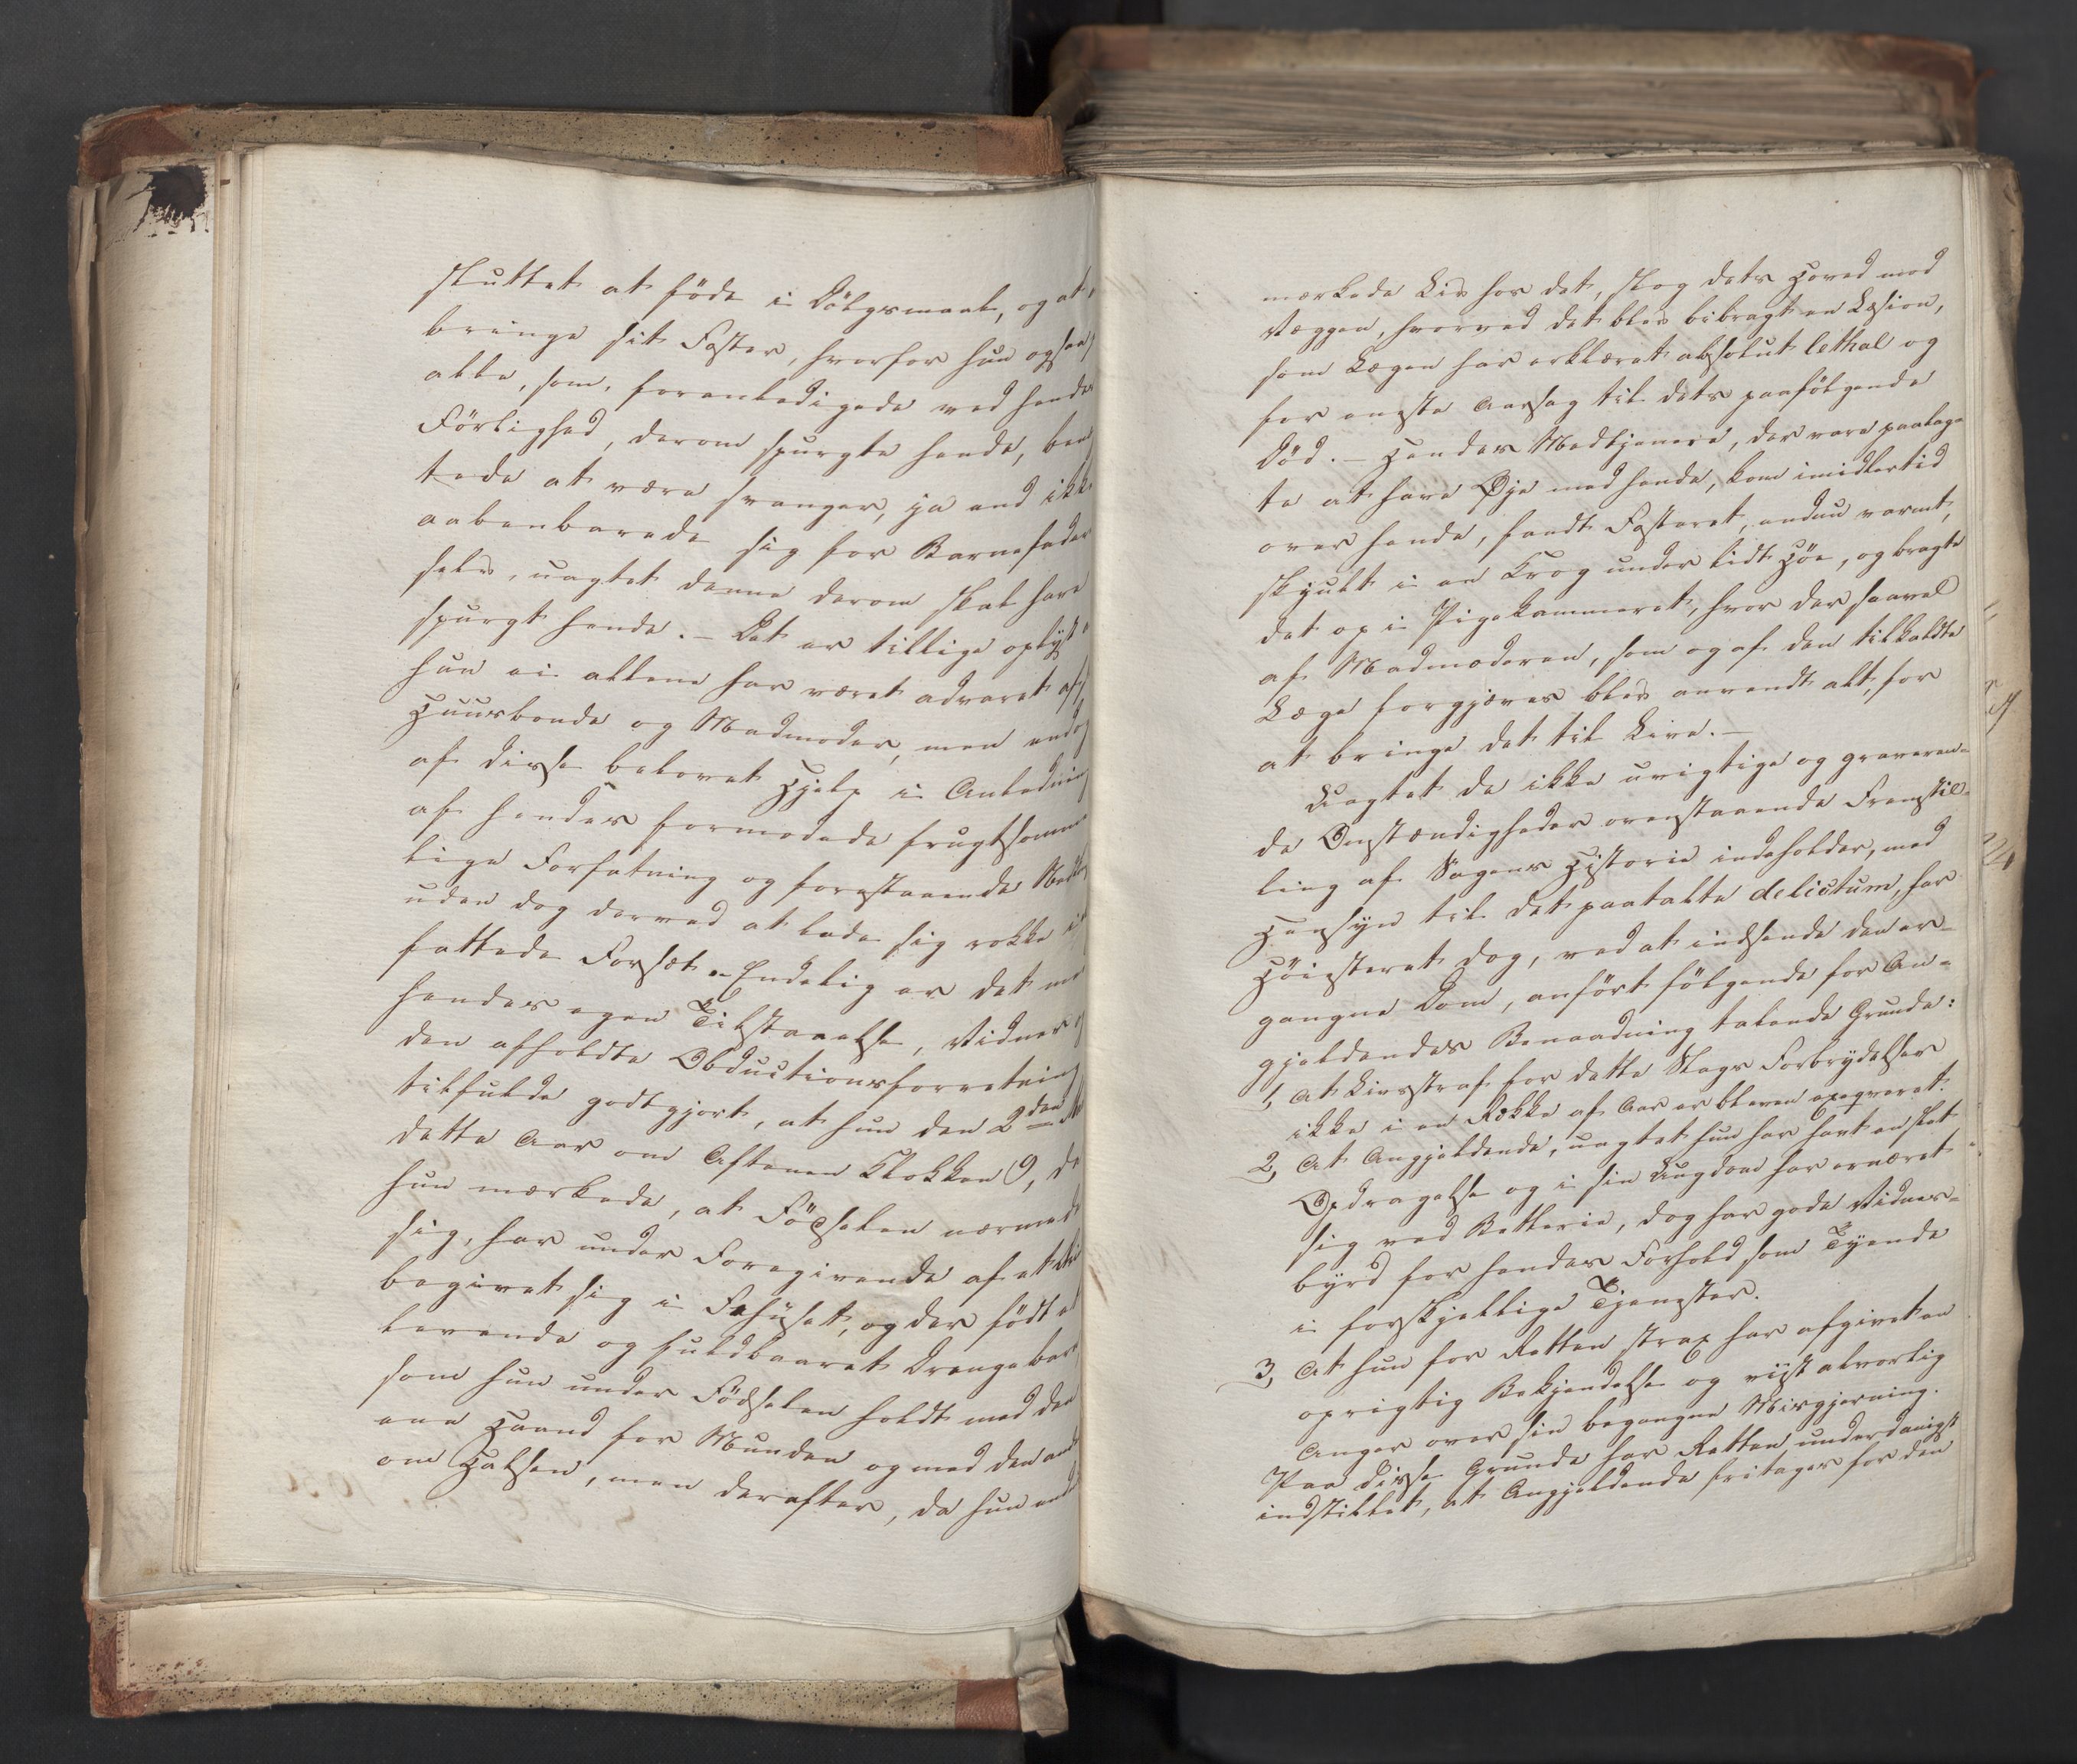 sluttet at föde i Dölgsmaal, og at
bringe sit Foster, hvorfor hun ogsaa
alle, som, foranledigede ved hendes
Förlighed, derom spurgte hende, ben
tede at være svanger, ja end ikke
aabenbarede sig for Barnefader
selv, uagtet denne derom skal have
spurgt hende. – Det er tillige oplyst
hun ei allene har været advaret af
Huusbonde og Madmoder, men endog
af disse belovet Hjelp i Anledning
af hendes formodede frugtsomme
lige Forfatning og forestaaende Nedk
uden dog derved at lade sig rokke i
fattede Forsæt. – Endelig er det me
hendes egen Tilstaaelse, Vidner og
den afholdte Obductionsforretning
tilfulde godtgjort, at hun den 2den
dette Aar om Aftenen Klokken 9, da
hun mærkede, at Födselen nærmede
sig, har under Foregivende af et
begivet sig i Fæhüset, og der födt et
levende og fuldbaaret Drengebarn
som hun under Födselen holdt med den
ene Haand for Munden og med den anden
om Halsen, men derefter, da hun end
mærkede Liv hos det, slog dets Hoved mod
Væggen, hvorved det blev bibragt en Læsion,
som Lægen har erklæret absolut lethal og
for eneste Aarsag til dets paafölgende
Död. – Hendes Medtjenere, der vare paalag
te at have Øje med hende, kom imidlertid
over hende, fandt Fosteret, endnu varmt,
skjult i en Krog under lidt Höe, og bragte
det op i Pigekammeret, hvor der saavel
af Madmoderen, som og af den tilkaldte
Læge forgjæves blev anvendt alt, for
at bringe det til Live. –
Uagtet de ikke uvigtige og graveren-
de Omstændigheder ovenstaaende Fremstil-
ling af Sagens Historie indeholder, med
Hensyn til det paatalte delictum, har
Höiesteret dog, ved at indsende den er-
gangne Dom, anfört fölgende for An-
gjeldendes Benaadning talende Grunde:
1, At Livsstraf for dette Slags Forbrydelser
ikke i en Række af Aar er bleven exeqveret.
2, At Angjeldende, uagtet hun har havt en slet
Opdragelse og i sin Ungdom har ernæret
sig ved Betlerie, dog har gode Vidnes-
byrd for hendes Forhold som Tyende
i forskjellige Tjenester.
3, At hun for Retten strax har afgivet en
oprigtig Bekjendelse og viist alvorlig
Anger over sin begangne Misgjerning.
Paa disse Grunde har Retten underdanigst
indstillet, at Angjeldende fritages for den